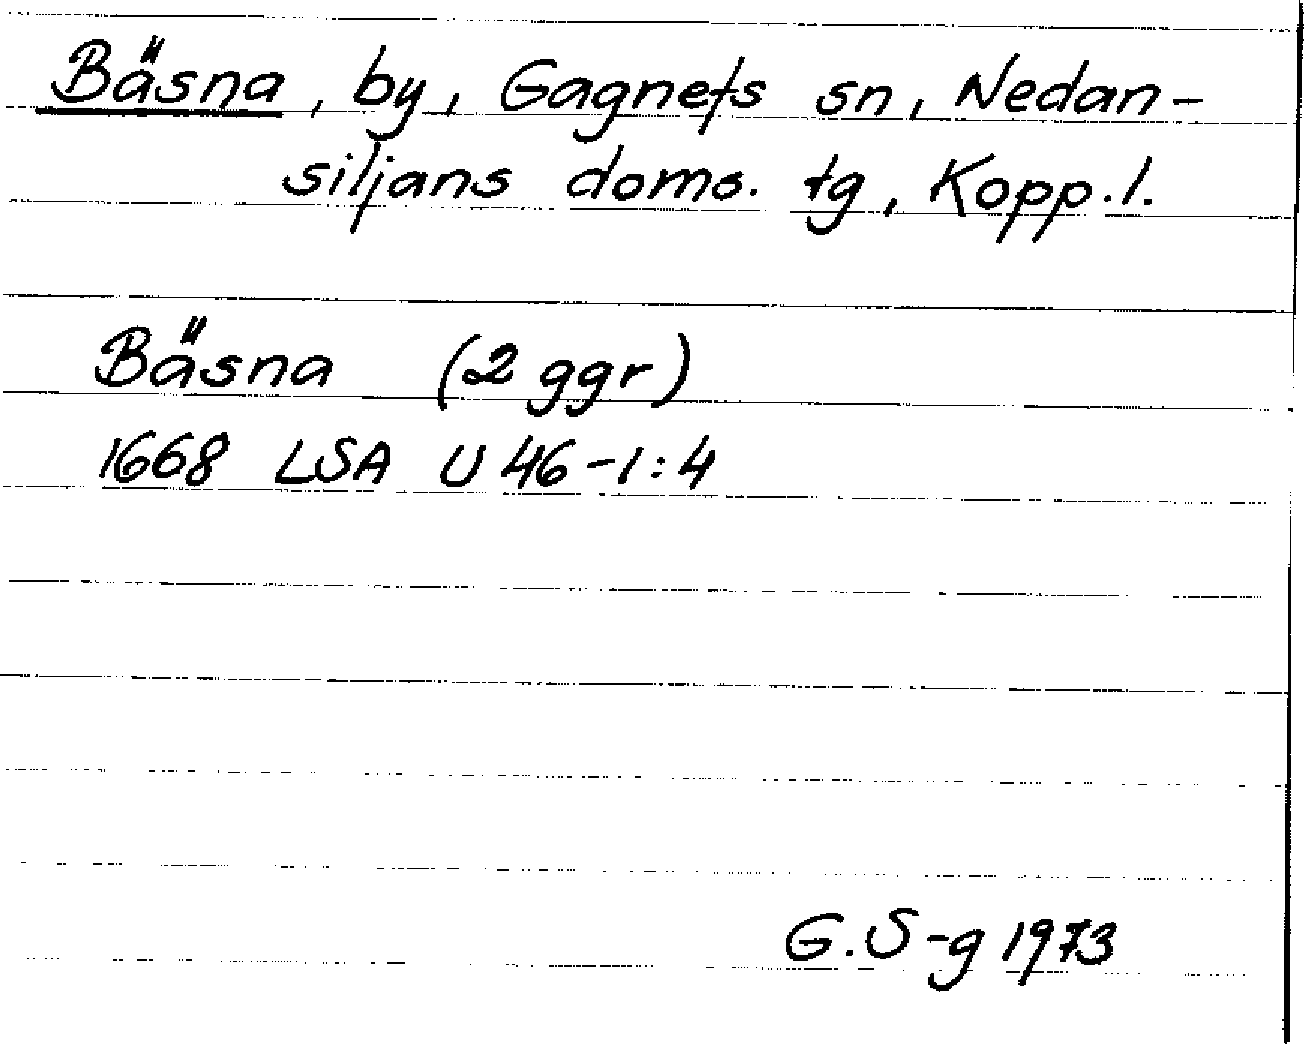 Bäsna, by, Gagnefs sn, Nedan-
siljans doms. tg, Kopp. l.
Bäsna (2 ggr)
1668 LSA U 46-1:4
G. S-g 1973